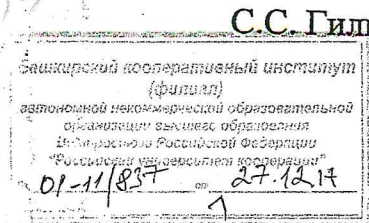 С.С. Гил
Башкирский кооперативный институт
(филиал)
автономной некоммерческой образовательной
организации высшего образования
Центросоюза Российской Федерации
"Российский университет кооперации"
01-11/837 от 27.12.17